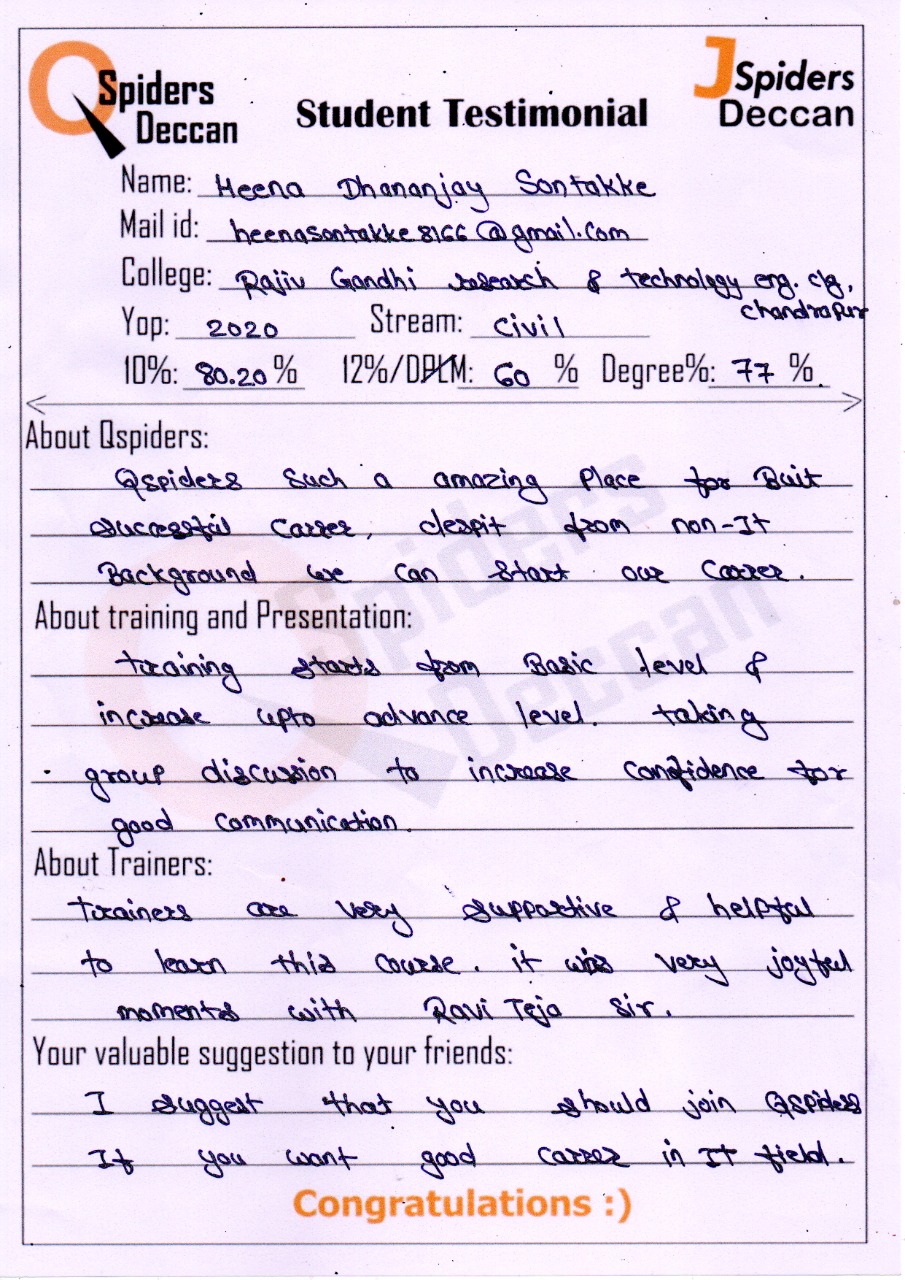 QSpiders Deccan
Student Testimonial
JSpiders Deccan
Name: Heena Dhananjay Sontakke
Mail id: heenasontakke8166@gmail.com
College: Rajiv Gandhi research & technology eng. clg,
chandrapur
Yop: 2020 Stream: Civil
10%: 80.20 % 12%/DPLM: 60 % Degree%: 77 %
About Qspiders:
Qspiders Such a amazing Place for Buit
successful Career, despit from non-It
Background we can start our Career.
About training and Presentation:
training starts from Basic level &
increase upto advance level. taking
group discussion to increase confidence for
good communication.
About Trainers:
trainers are very supportive & helpful
to learn this course. it was very joyful
moments with Ravi Teja sir.
Your valuable suggestion to your friends:
I suggest that you should join Qspiders
If you want good career in It field.
Congratulations :)
Spiders
Deccan